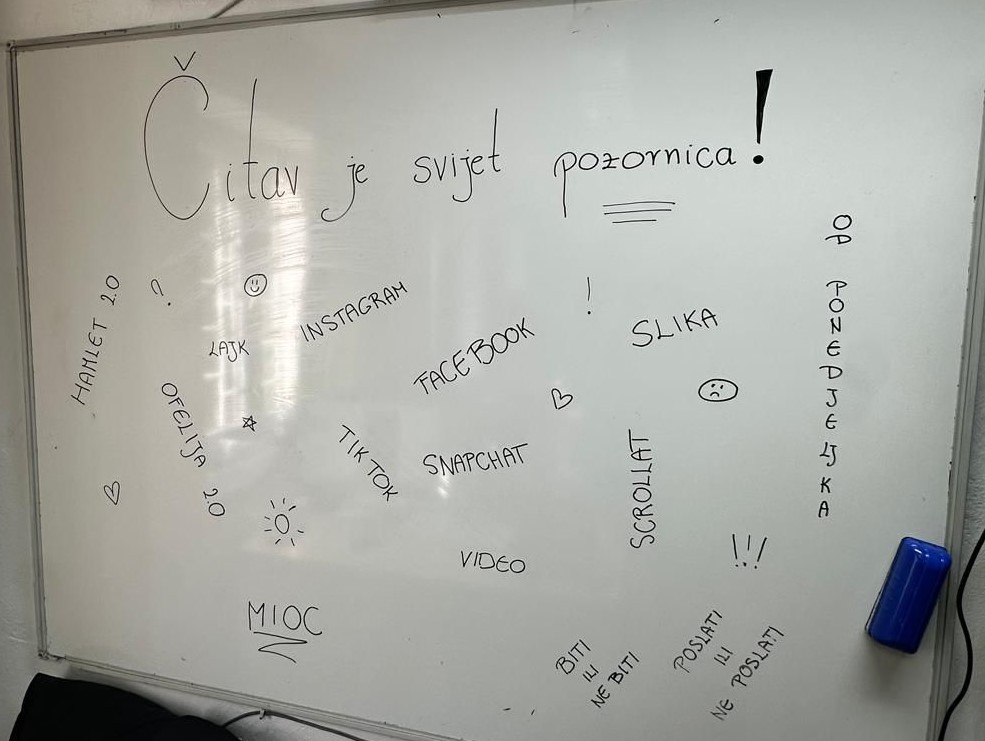 Čitav je svijet pozornica!
OD PONEDJELJKA
HAMLET 2.0
?
LAJK
INSTAGRAM
!
SLIKA
FACEBOOK
OFELIJA 2.0
TIK TOK
SNAPCHAT
SCROLLAT
VIDEO
!!!
MIOC
BITI
ILI
NE BITI
POSLATI
ILI
NE POSLATI